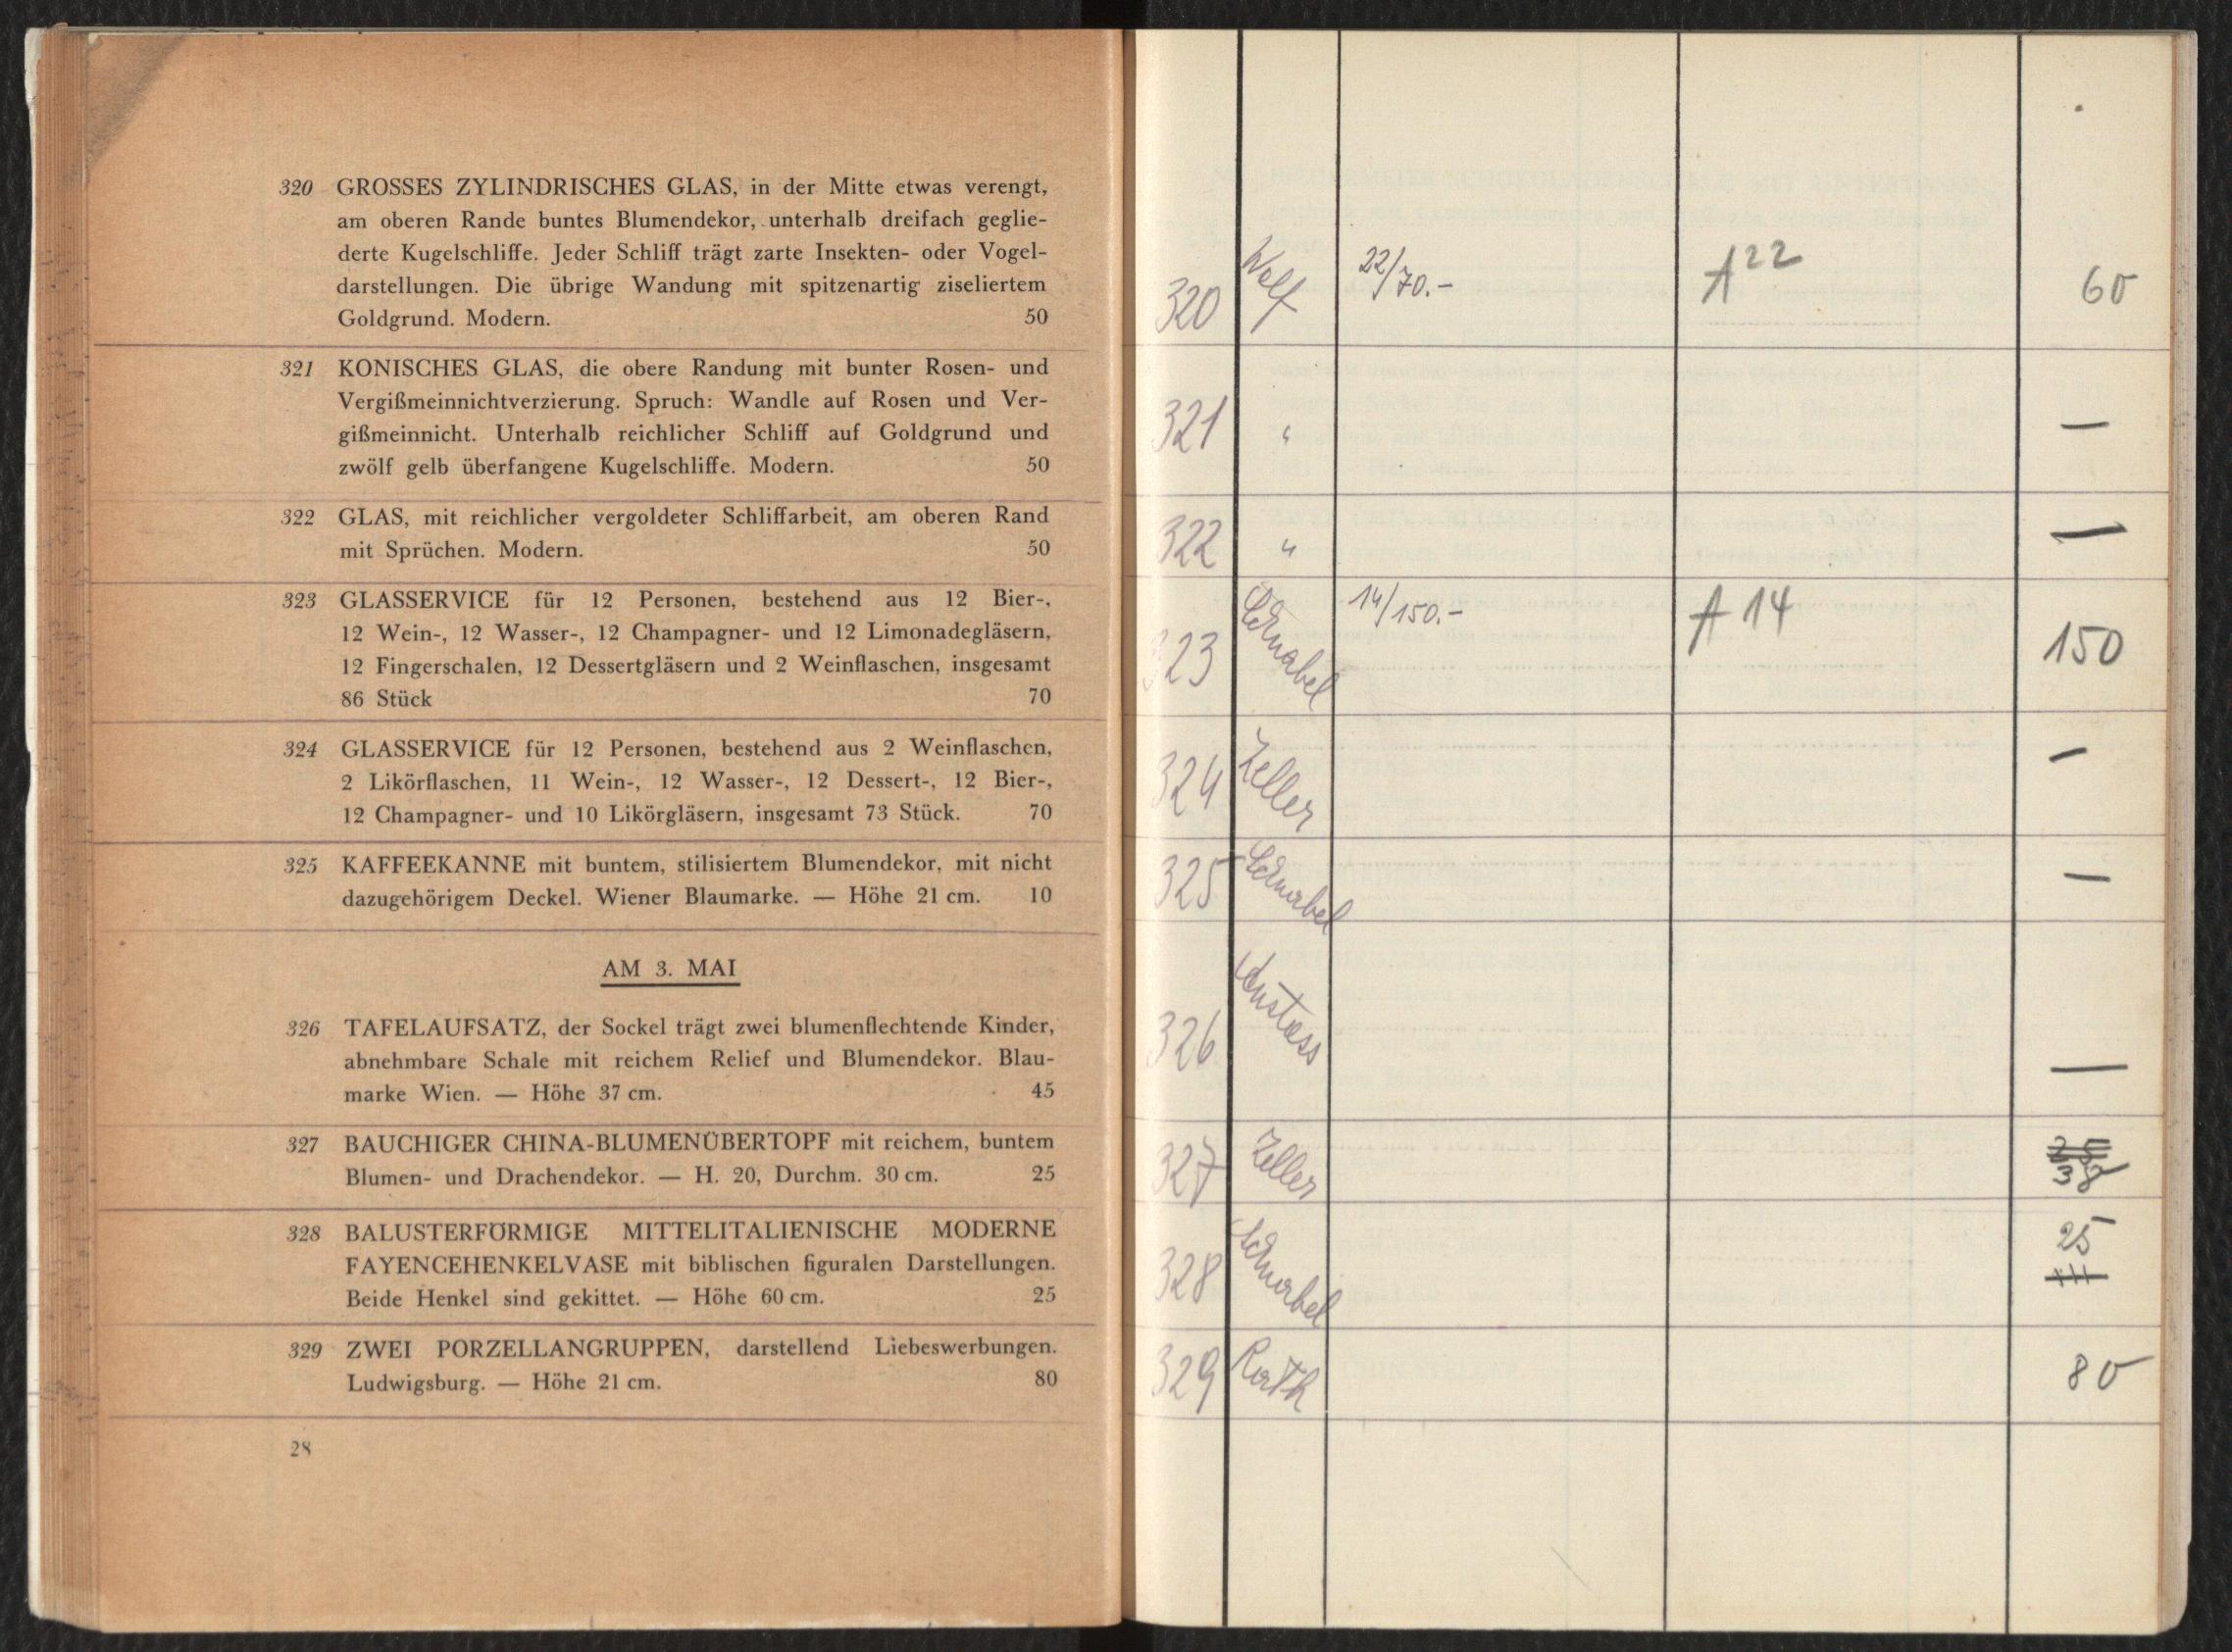 320 GROSSES ZYLINDRISCHES GLAS, in der Mitte etwas verengt,
am oberen Rande buntes Blumendekor, unterhalb dreifach geglie-
derte Kugelschliffe. Jeder Schliff trägt zarte Insekten- oder Vogel-
darstellungen. Die übrige Wandung mit spitzenartig ziseliertem
Goldgrund. Modern. 50
321 KONISCHES GLAS, die obere Randung mit bunter Rosen- und
Vergißmeinnichtverzierung. Spruch: Wandle auf Rosen und Ver-
gißmeinnicht. Unterhalb reichlicher Schliff auf Goldgrund und
zwölf gelb überfangene Kugelschliffe. Modern. 50
322 GLAS, mit reichlicher vergoldeter Schliffarbeit, am oberen Rand
mit Sprüchen. Modern. 50
323 GLASSERVICE für 12 Personen, bestehend aus 12 Bier-,
12 Wein-, 12 Wasser-, 12 Champagner- und 12 Limonadegläsern,
12 Fingerschalen, 12 Dessertgläsern und 2 Weinflaschen, insgesamt
86 Stück 70
324 GLASSERVICE für 12 Personen, bestehend aus 2 Weinflaschen,
2 Likörflaschen, 11 Wein-, 12 Wasser-, 12 Dessert-, 12 Bier-,
12 Champagner- und 10 Likörgläsern, insgesamt 73 Stück. 70
325 KAFFEEKANNE mit buntem, stilisiertem Blumendekor, mit nicht
dazugehörigem Deckel. Wiener Blaumarke. — Höhe 21 cm. 10
AM 3. MAI
326 TAFELAUFSATZ, der Sockel trägt zwei blumenflechtende Kinder,
abnehmbare Schale mit reichem Relief und Blumendekor. Blau-
marke Wien. — Höhe 37 cm. 45
327 BAUCHIGER CHINA-BLUMENÜBERTOPF mit reichem, buntem
Blumen- und Drachendekor. — H. 20, Durchm. 30 cm. 25
328 BALUSTERFÖRMIGE MITTELITALIENISCHE MODERNE
FAYENCEHENKELVASE mit biblischen figuralen Darstellungen.
Beide Henkel sind gekittet. — Höhe 60 cm. 25
329 ZWEI PORZELLANGRUPPEN, darstellend Liebeswerbungen.
Ludwigsburg. — Höhe 21 cm. 80
28
320 Wolf 22/70.- A 22 60
321 " —
322 " —
323 Schnabel 14/150.- A 14 150
324 Zeller —
325 Schnabel —
326 —
327 Zeller
328 Schnabel 25
329 Rath 80